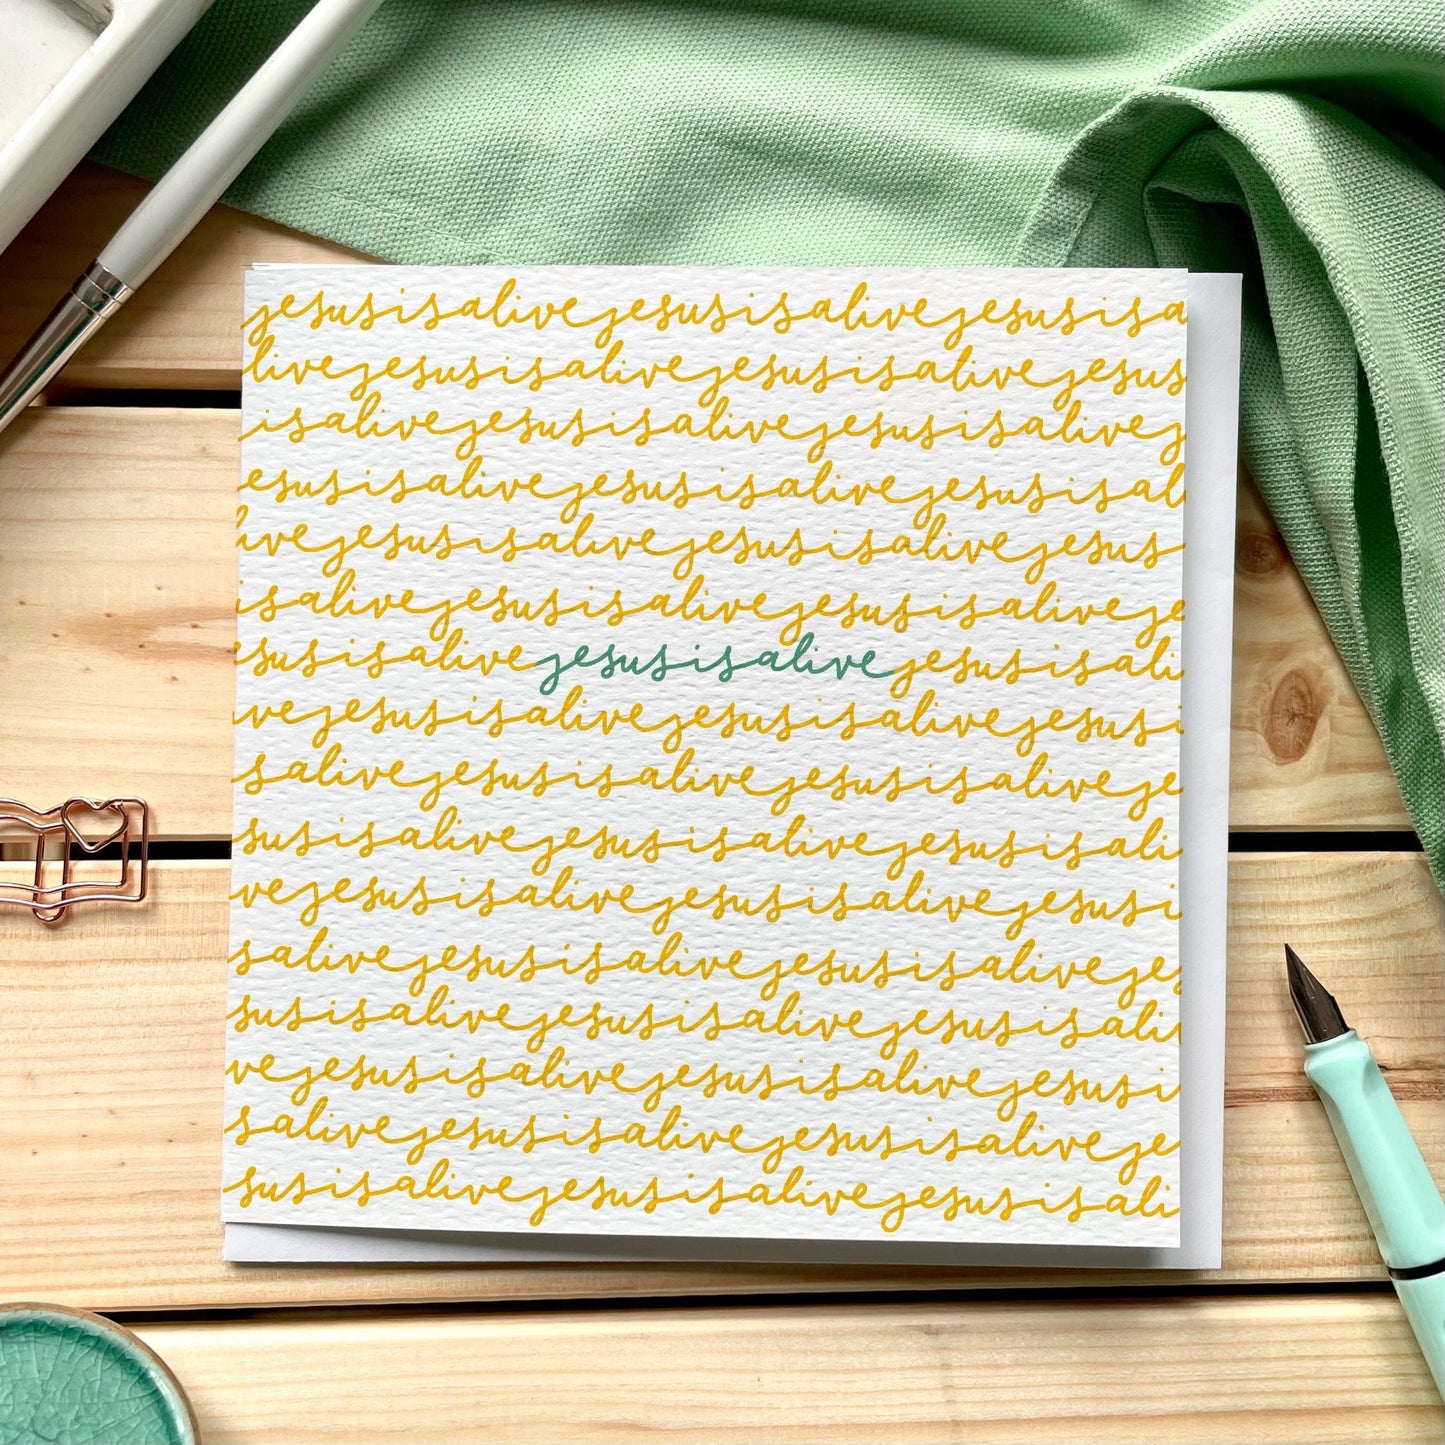 jesusisalivejesusisalivejesusisa
livejesusisalivejesusisalivejesus
isalivejesusisalivejesusisalivej
esusisalivejesusisalivejesusisal
ivejesusisalivejesusisalivejesus
isalivejesusisalivejesusisaliveje
susisalivejesusisalivejesusisali
vejesusisalivejesusisalivejesusi
salivejesusisalivejesusisaliveje
susisalivejesusisalivejesusisali
vejesusisalivejesusisalivejesusi
salivejesusisalivejesusisaliveje
susisalivejesusisalivejesusisali
vejesusisalivejesusisalivejesusi
salivejesusisalivejesusisaliveje
susisalivejesusisalivejesusisali